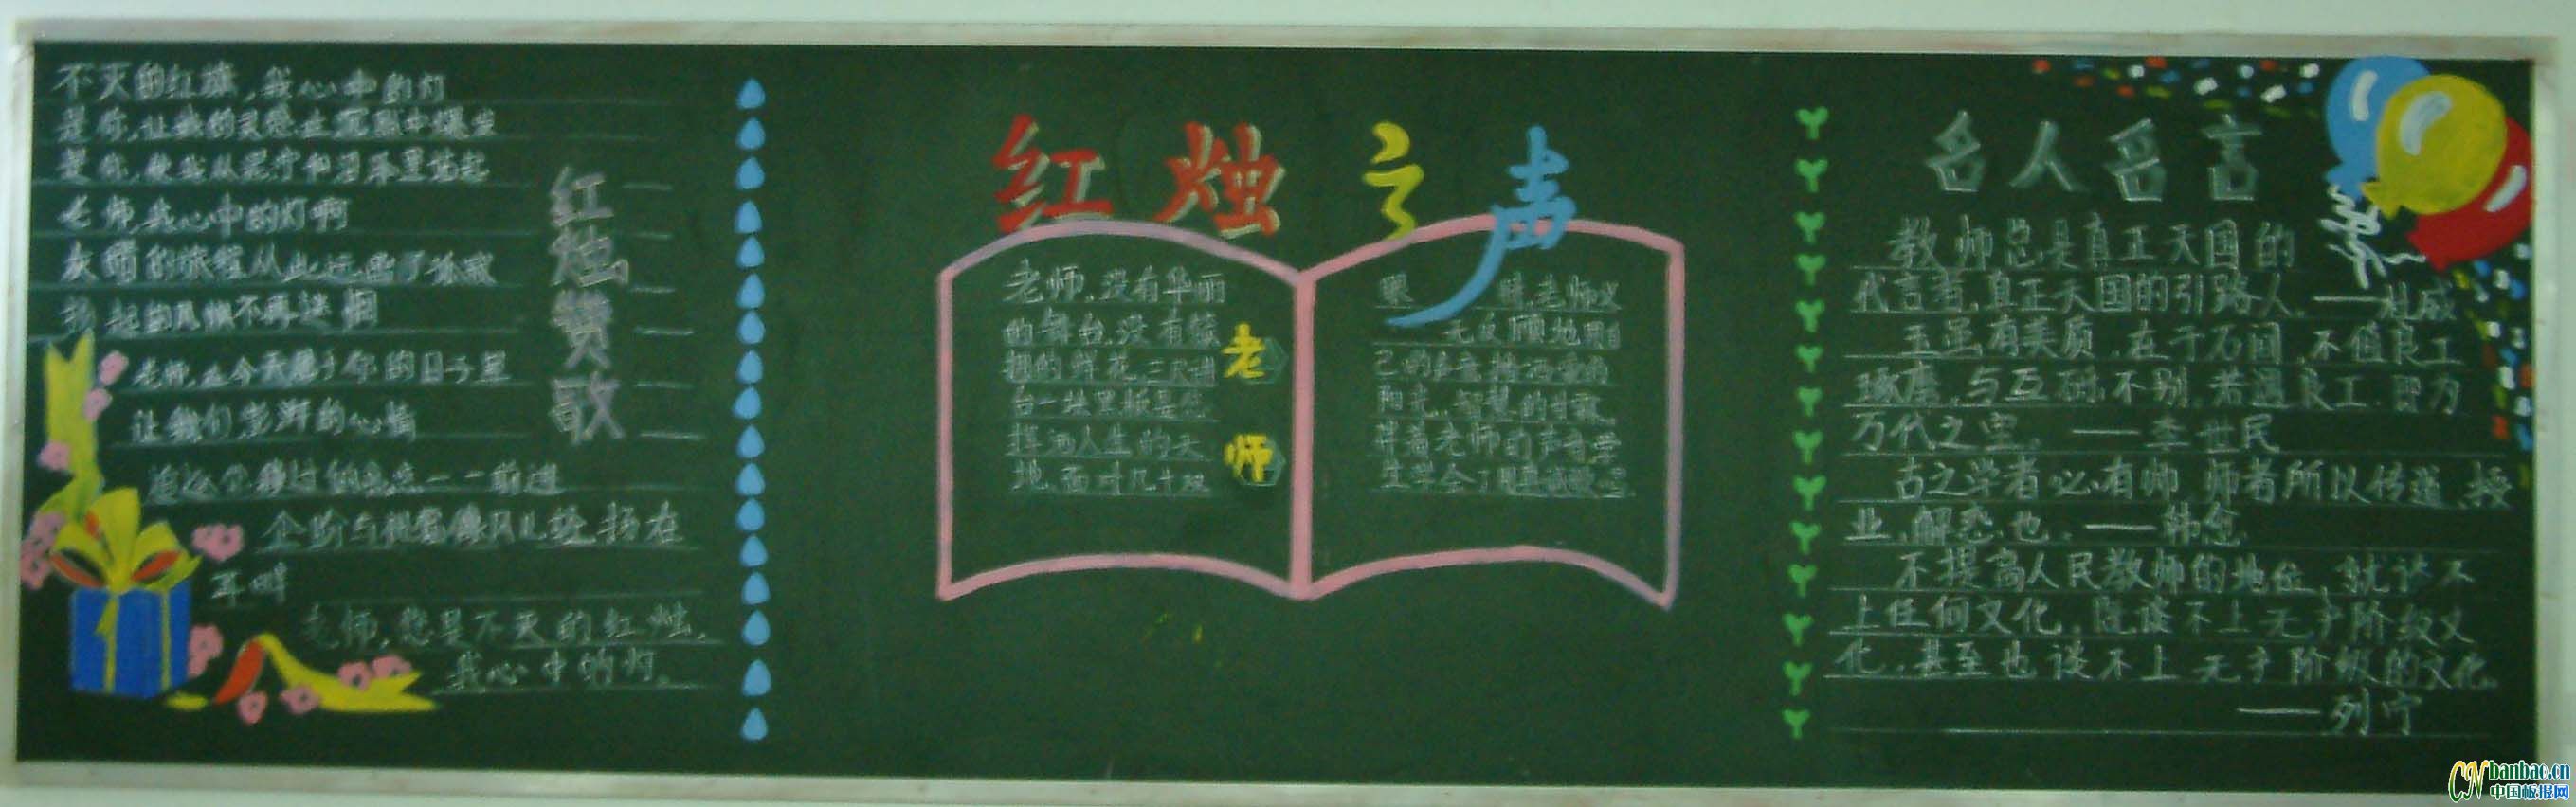 不灭的红旗，我心中的灯
是你，让我的灵感在沉默中爆发
是你，使我从泥泞和习泽里站起
老师，我心中的灯啊
灰暗的旅程从此远去了
扬起的风帆不再迷惘
老师，在今天属于你的日子里
让我们澎湃的心情
耳畔
老师，您是不灭的红烛，
我心中的灯。
红烛赞歌
红烛之声
老师，没有华丽
的舞台，没有簇
拥的鲜花，三尺讲
台一块黑板是您
挥洒人生的天
地，面对几十双
眼睛老师义
无反顾地用自
己的
阳光，智慧的甘露，
伴着老师的声音学
生学会了
老师
名人名言
教师总是真正天国的
代言者，真正天国的引路人。——杜威
玉虽有美质，在于石间，不值良工
琢磨，与瓦砾不别，若遇良工，即为
万代之宝。——李世民
古之学者必有师，师者所以传道、授
业、解惑也。——韩愈
不提高人民教师的地位，就谈不
上任何文化，既谈不上无产阶级文
化，甚至也谈不上无产阶级的文化。
——列宁
CN banbao.cn
中国板报网